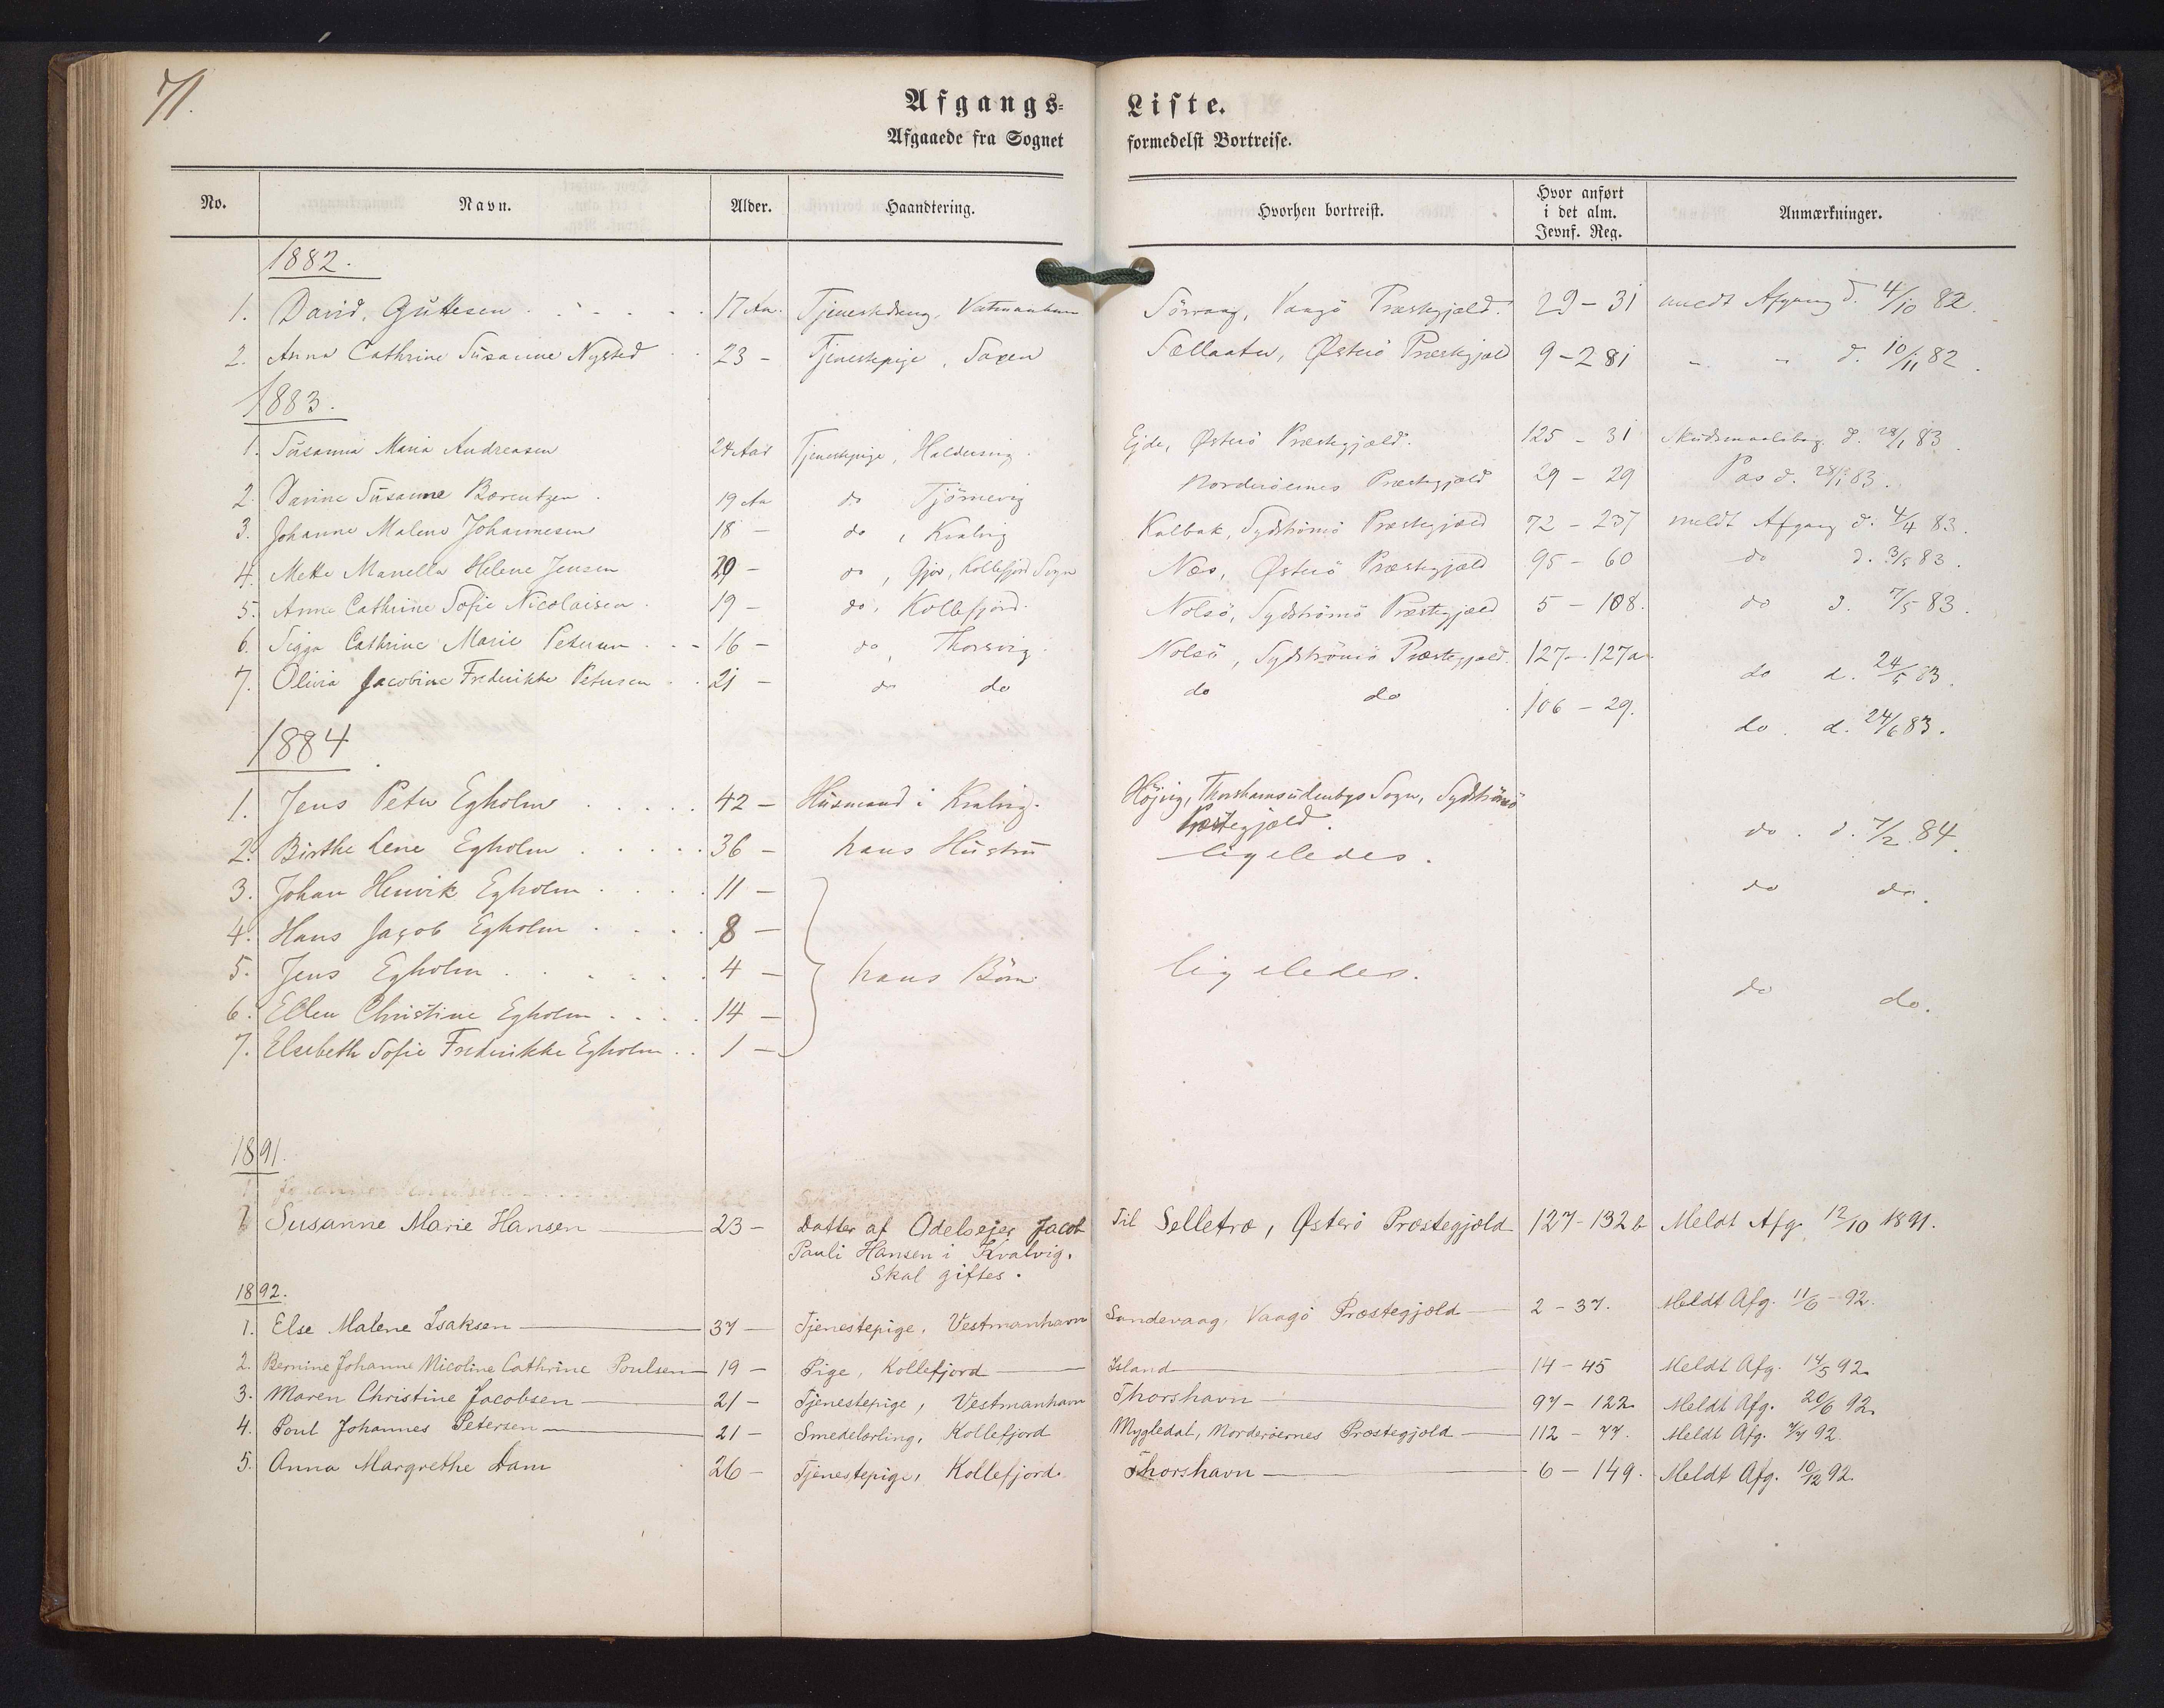 71.
Afgangs= Liste.
Afgaaede fra Sognet formedelst Bortreise.
No. Navn. Alder. Haandtering. Hvorhen bortreist. Hvor anført i det alm. Jevnf. Reg. Anmærkninger.
1882.
1. David, Guttesen 17 Aar. Tjenestedreng, Vestmanhavn Sörvaag, Vaagö Præstegjæld. 29-31 meldt Afgang d. 4/10 82.
2. Anna Cathrine Susanne Nysted 23 - Tjenestepige, Saxen Sællaater, Østerö Præstegjæld 9-281 - - d. 10/11 82.
1883.
1. Susanna Maria Andreasen 24 Aar Tjenestepige, Haldersvig. Ejde, Østerö Præstegjæld. 125 - 31 Skudsmaalsbog d. 28/1 83.
2. Davine Susanne Bærentzen. 19 Aar do Tjörnevig Norderöernes Præstegjæld 29 - 29 Pas d. 83.
3. Johanne Malene Johannesen 18 - do, Kvalvig Kalbak, Sydströmö Præstegjæld 72 - 237 meldt Afgang d. 4/4 83.
4. Mette Manella Helene Jensen 20 - do, Gjov, Kollefjord Sogn Næs, Østerö Præstegjæld 95 - 60 do d. 3/5 83.
5. Anne Cathrine Sofie Nicolaisen. 19 - do, Kollefjord. Nolsö, Sydströmö Præstegjæld 5 - 108. do d. 7/5 83.
6. Sigga Cathrine Marie Petersen 16 - do, Thorsvig. Nolsö, Sydströmö Præstegjæld. 127 - 127a. do d. 24/5 83.
7. Olivia Jacobine Frederikke Petersen 21 - do do do do 106 - 29. do. d. 24/6 83.
1884.
1. Jens Peter Egholm 42 - Husmand i Kvalvig. Höjvig, Thorshavns udenbys Sogn, Sydströmö
Præstegjæld. do. d. 7/2 84.
2. Birthe Lene Egholm 36 - hans Hustru ligeledes. do do.
3. Johan Henrik Egholm 11 -
4. Hans Jacob Egholm 8 -
5. Jens Egholm 4 - hans Börn ligeledes. do do.
6. Ellen Christine Egholm 14 -
7. Elsebeth Sofie Frederikke Egholm 1 -
1891.
1 Susanne Marie Hansen 23 - Datter af Odelsejer Jacob Til Selletræ, Østerö Præstegjæld 127-132b Meldt Afg. 12/10 1891.
Pauli Hansen i Kvalvig.
Skal giftes.
1892.
1. Else Malene Isaksen 37 - Tjenestepige, Vestmanhavn Sandevaag, Vaagö Præstegjæld 2 - 37. Meldt Afg. 11/6 - 92.
2. Bernine Johanne Nicoline Cathrine Poulsen 19 - Pige, Kollefjord Island 14 - 45 Meldt Afg. 14/5 92.
3. Maren Christine Jacobsen 21 - Tjenestepige, Vestmanhavn Thorshavn 97 - 122. Meldt Afg. 20/6 92.
4. Poul Johannes Petersen 21 - Smedelærling, Kollefjord Mygledal, Norderöernes Præstegjæld 112 - 77. Meldt Afg. 92.
5. Anna Margrethe Dam 26 - Tjenestepige, Kollefjord. Thorshavn 6 - 149. Meldt Afg. 10/12 92.